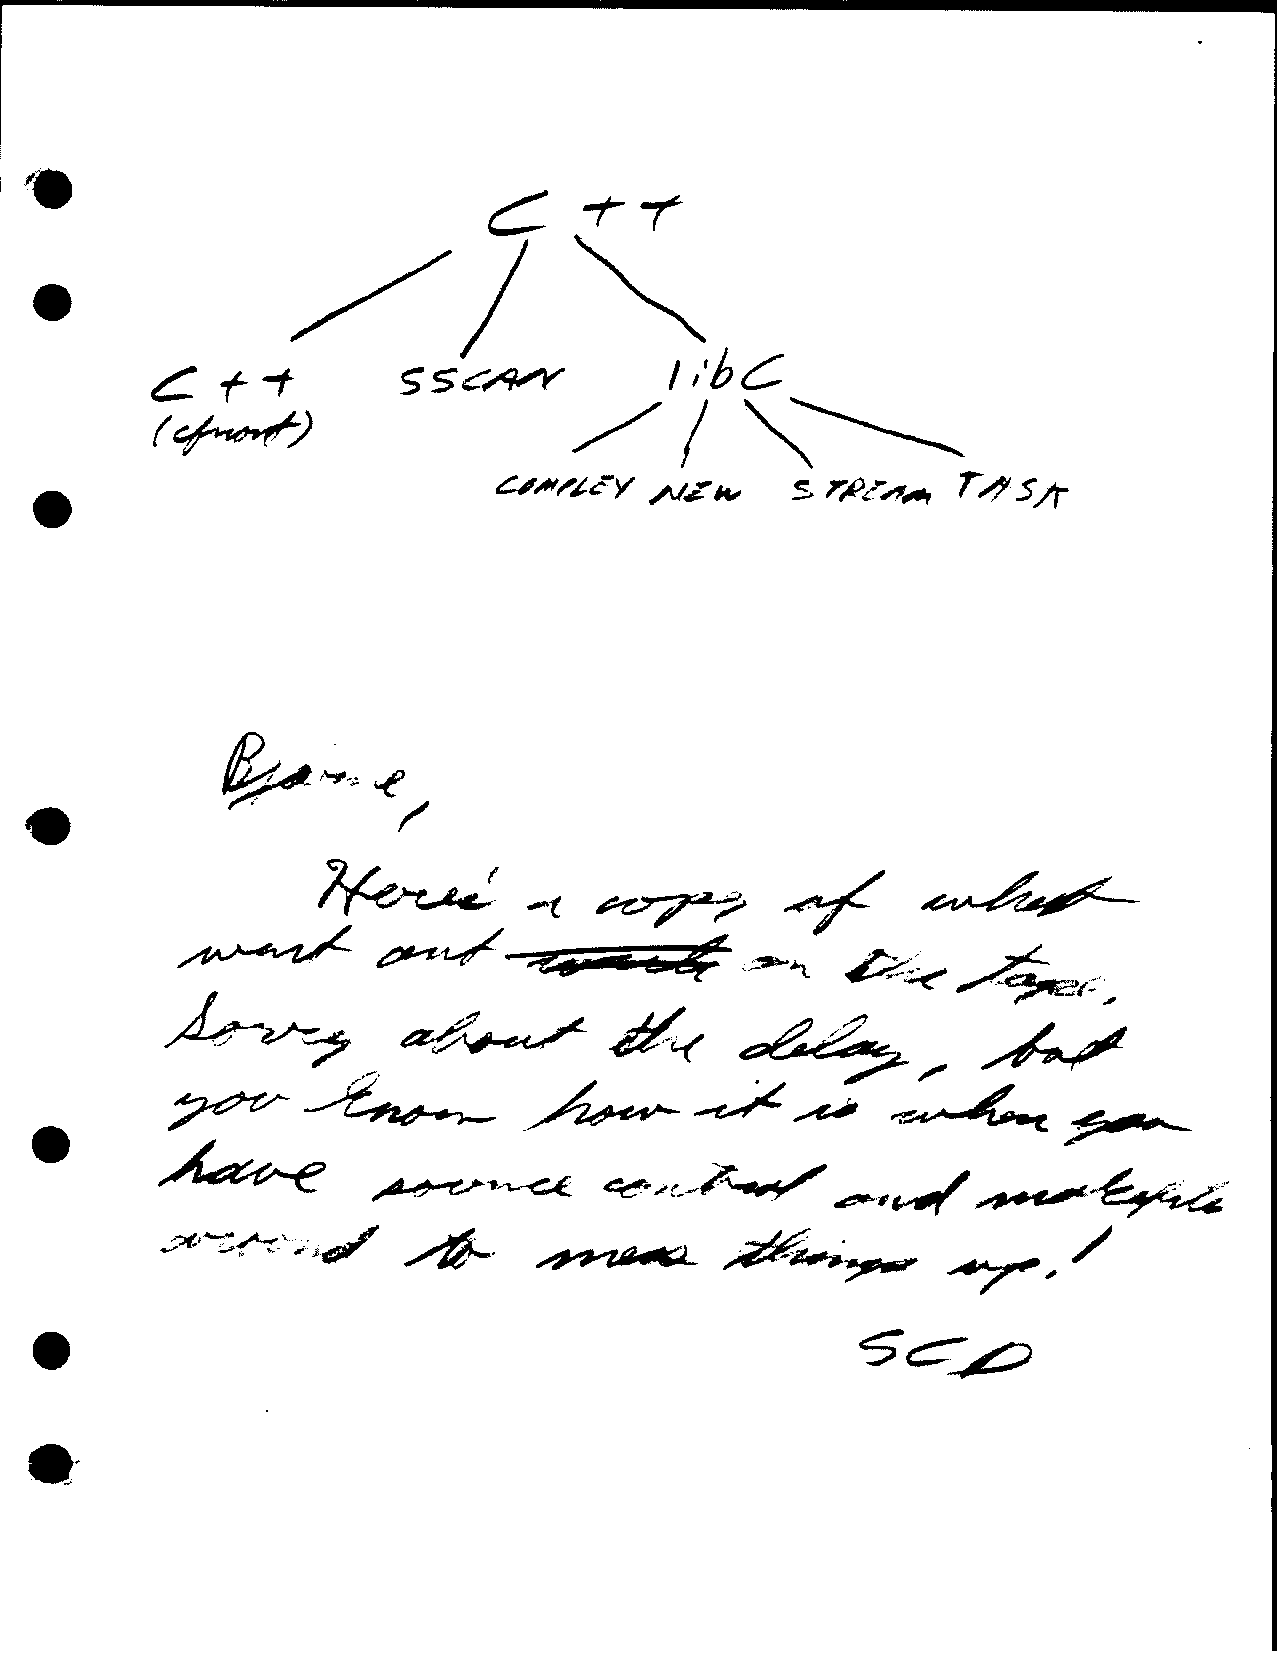 C ++
C ++ SSCAN libC
(cfront)
COMPLEX NEW STREAM TASK
Bjarne,
Here's a copy of what
went out on the tape.
Sorry about the delay, but
you know how it is when you
have source control and makefile
around to mess things up!
SCD